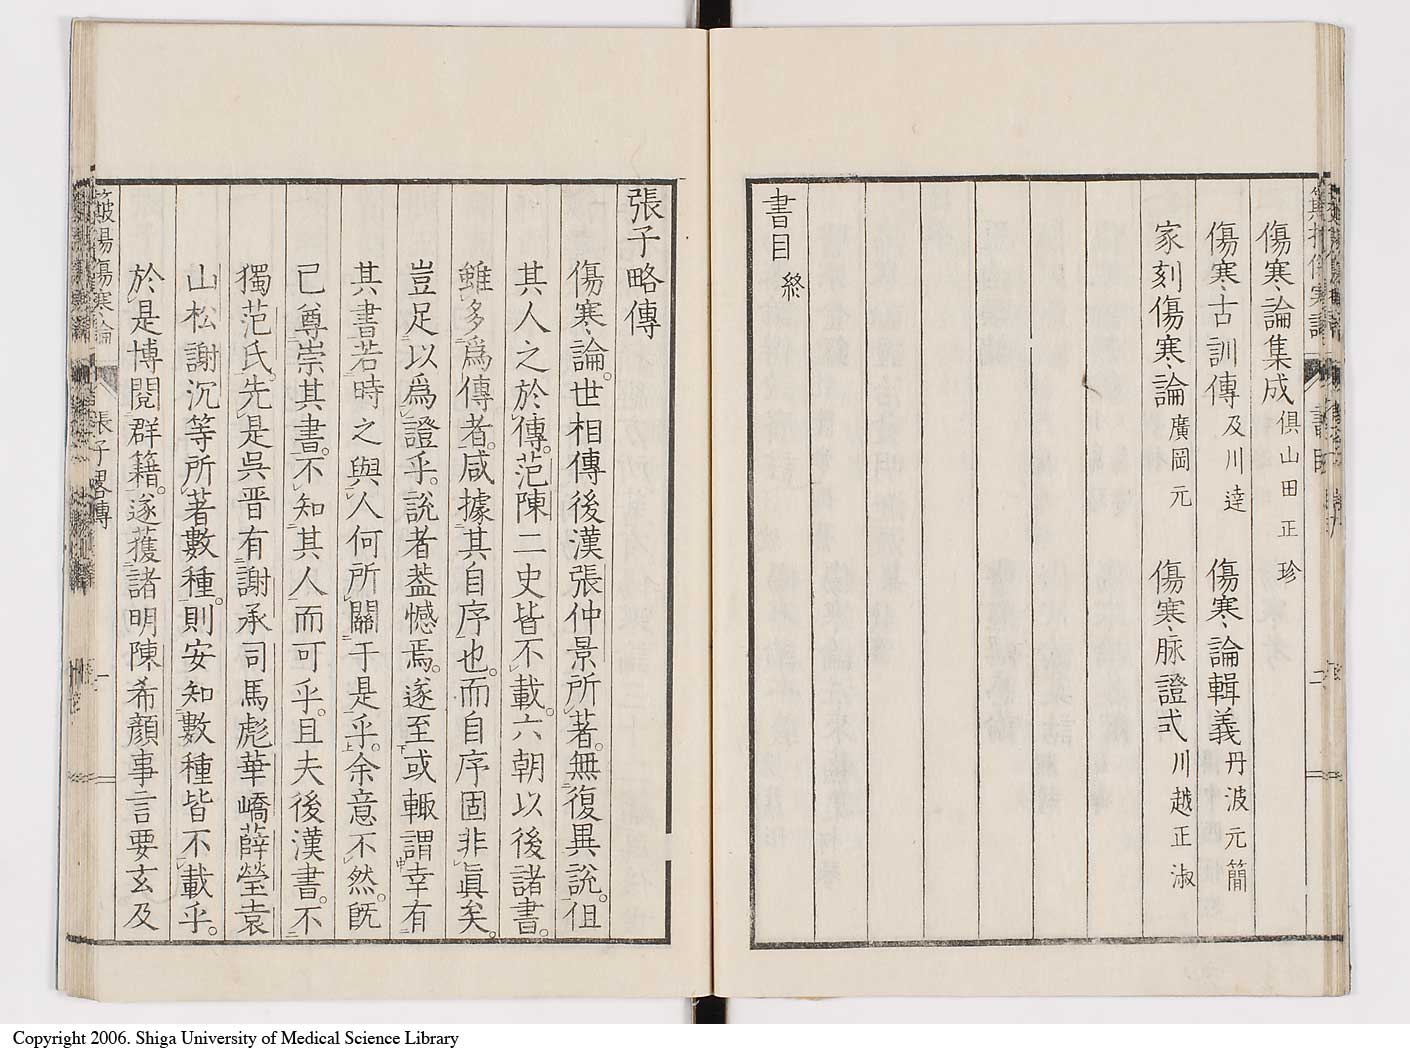 傷寒論集成 俱山田正珍
傷寒古訓傳 及川達 傷寒論輯義 丹波元簡
家刻傷寒論 廣岡元 傷寒脉證式 川越正淑
書目終
張子略傳
傷寒論。世相傳後漢張仲景所著。無復異說。但
其人之於傳。范陳二史皆不載。六朝以後諸書。
雖多爲傳者。咸據其自序也。而自序固非眞矣。
豈足以爲證乎。說者葢憾焉。遂至或輙謂幸有
其書若時之與人何所關于是乎。余意不然。旣
已尊崇其書。不知其人而可乎。且夫後漢書。不
獨范氏。先是吳晋有謝承司馬彪華嶠薛瑩袁
山松謝沉等所著數種。則安知數種皆不載乎。
於是博閱群籍。遂獲諸明陳希顏事言要玄及
傷寒論
張子畧傳
Copyright 2006. Shiga University of Medical Science Library